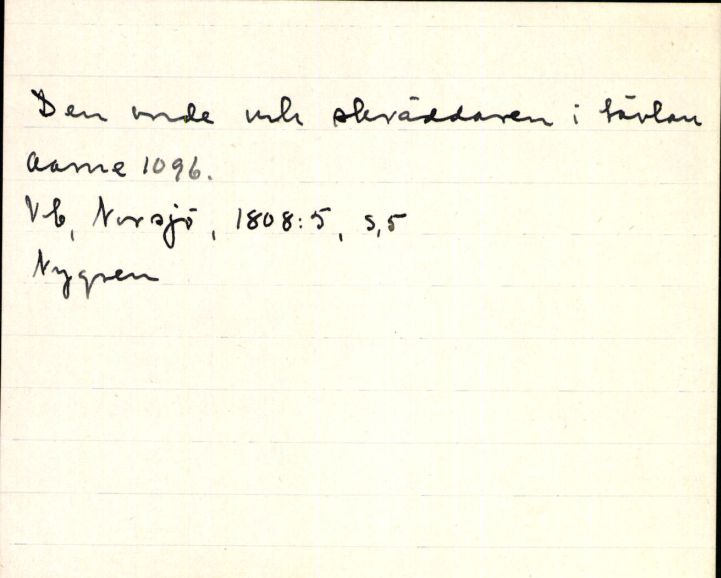 Den onde och skräddaren i tävlan
Aarne 1096.
Vb, Norsjö, 1808:5, s,5
Nygren